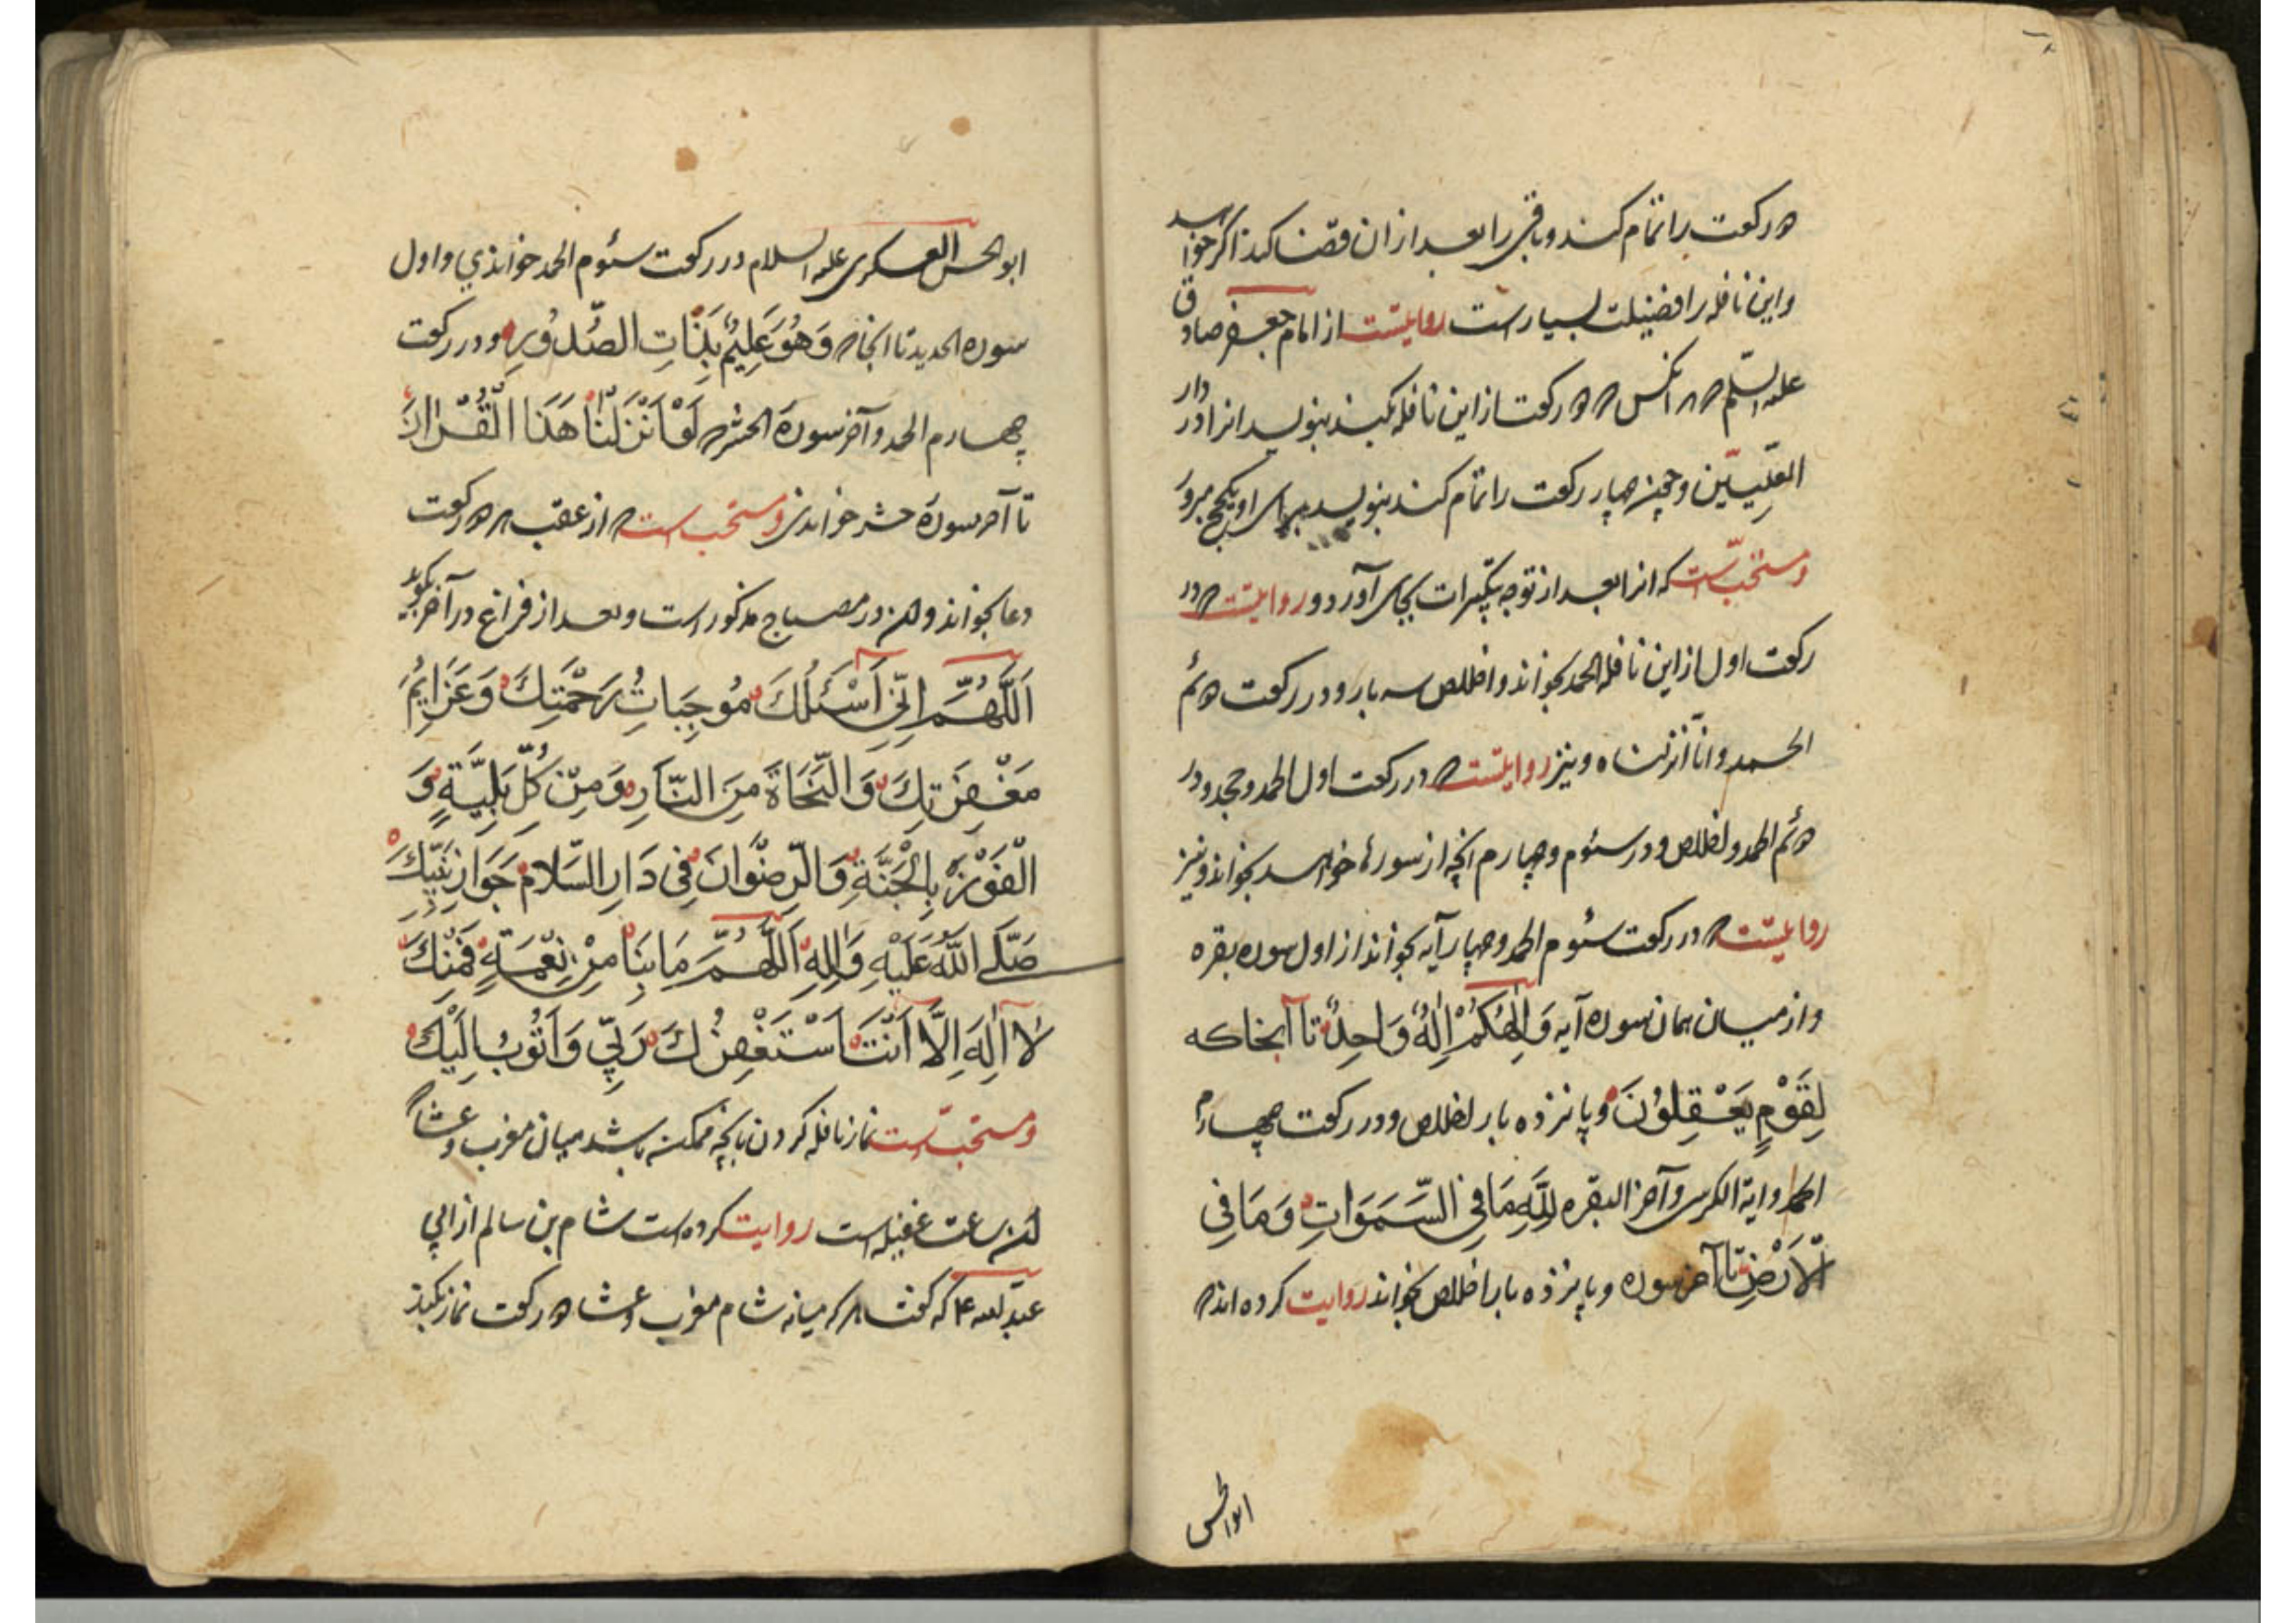 دو رکعت را تمام کند و باقی را بعد از ان قضا کند اگر خواهد
و این نافله را فضیلت بسیار است روایتست از امام جعفر صادق
علیه السلم که هر انکس که دو رکعت از این نافله بکند بنویسد انرا در دار
العلیین و چون چهار رکعت را تمام کند بنویسد برای او یک حج مبرور
و مستحب است که انرا بعد از توجه بتکبیرات بجای آورد و روایتست که در
رکعت اول از این نافله الحمد بخواند و اخلاص سه بار و در رکعت دوئم
الحمد و انا انزلناه و نیز روایتست که در رکعت اول الحمد و جحد و در
دوئم الحمد و اخلاص و در سئوم و چهارم انچه از سورها خواهد بخواند و نیز
روایتست که در رکعت سئوم الحمد و چهار آیه بخواند از اول سوره بقره
و از میان همان سوره آیه وَاِلٰهُكُمْ اِلٰهٌ وَاحِدٌ تا آنجا که
لِقَوْمٍ يَعْقِلُوْنَ و پانزده بار اخلاص و در رکعت چهارم
الحمد و ایة الکرسی و آخر البقره لِلّٰهِ مَا فِي السَّمَوَاتِ وَمَا فِی
الْاَرْضِ تا آخر سوره و پانزده بار اخلاص بخواند روایت کرده اند که
ابو الحسن
ابو الحسن العسکری علیه السلام در رکعت سئوم الحمد خواندی و اول
سوره الحدید تا انجا که وَهُوَ عَلِيْمٌ بِذَاتِ الصُّدُوْرِ و در رکعت
چهارم الحمد و آخر سورة الحشر که لَوْ اَنْزَلْنَا هَذَا الْقُرْاٰنَ
تا آخر سورة حشر خواندی و مستحب است که از عقب هر دو رکعت
دعا بخواند و ان در مصباح مذکور است و بعد از فراغ در آخر بگوید
اَللّٰهُمَّ اِنِّي اَسْئَلُكَ مُوجِبَاتِ رَحْمَتِكَ وَعَزَايِمَ
مَغْفِرَتِكَ وَالنَّجَاةَ مِنَ النَّارِ وَمِنْ كُلِّ بَلِيَّةٍ وَ
الْفَوْزَ بِالْجَنَّةِ وَالرِّضْوَانَ فِي دَارِ السَّلَامِ جَوَارِ نَبِيِّكَ
صَلَّے اللّٰهُ عَلَيْهِ وَاٰلِهِ اَللّٰهُمَّ مَا بِنَا مِنْ نِعْمَةٍ فَمِنْكَ
لَا اِلٰهَ اِلَّا اَنْتَ اَسْتَغْفِرُكَ رَبِّي وَاَتُوبُ اِلَيْكَ
و مستحب است نماز نافله کردن بانچه ممکن باشد میان مغرب و عشا
که ان ساعت غفیله است روایت کرده است هشام بن سالم از ابی
عبد الله ع که گفت هر که میانه شام مغرب و عشا دو رکعت نماز بکند